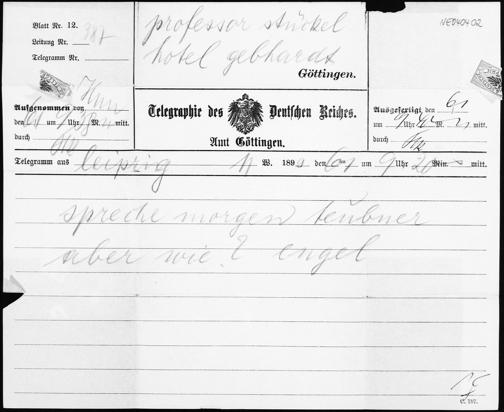 Blatt Nr. 12.
Leitung Nr. 387
Telegramm Nr.
professor stäckel
hotel gebhardt
Göttingen.
NE040402
Aufgenommen von Hnn
den 6/1 um 9 Uhr 38 M. mitt.
durch
Telegraphie des Deutschen Reiches.
Amt Göttingen.
Ausgefertigt den 6/1
um 9 Uhr M. mitt.
durch
Telegramm aus leipzig 11 W. 189 den 6/1 um 9 Uhr 20 Min. mitt.
spreche morgen teubner
aber wie? engel
C. 187.